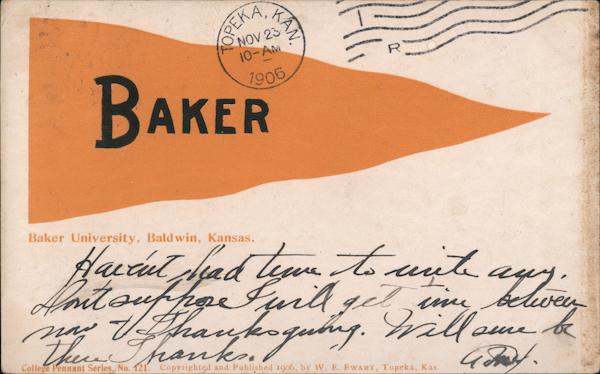 TOPEKA, KAN.
NOV 23
10-AM
1906
I
R
BAKER
Baker University, Baldwin, Kansas.
Haven't had time to write any.
Dont suppose I will get time between
now & Thanksgiving. Will sure be
there Thanks.
College Pennant Series, No. 121. Copyrighted and Published 1906, by W. E. Ewart, Topeka, Kas.